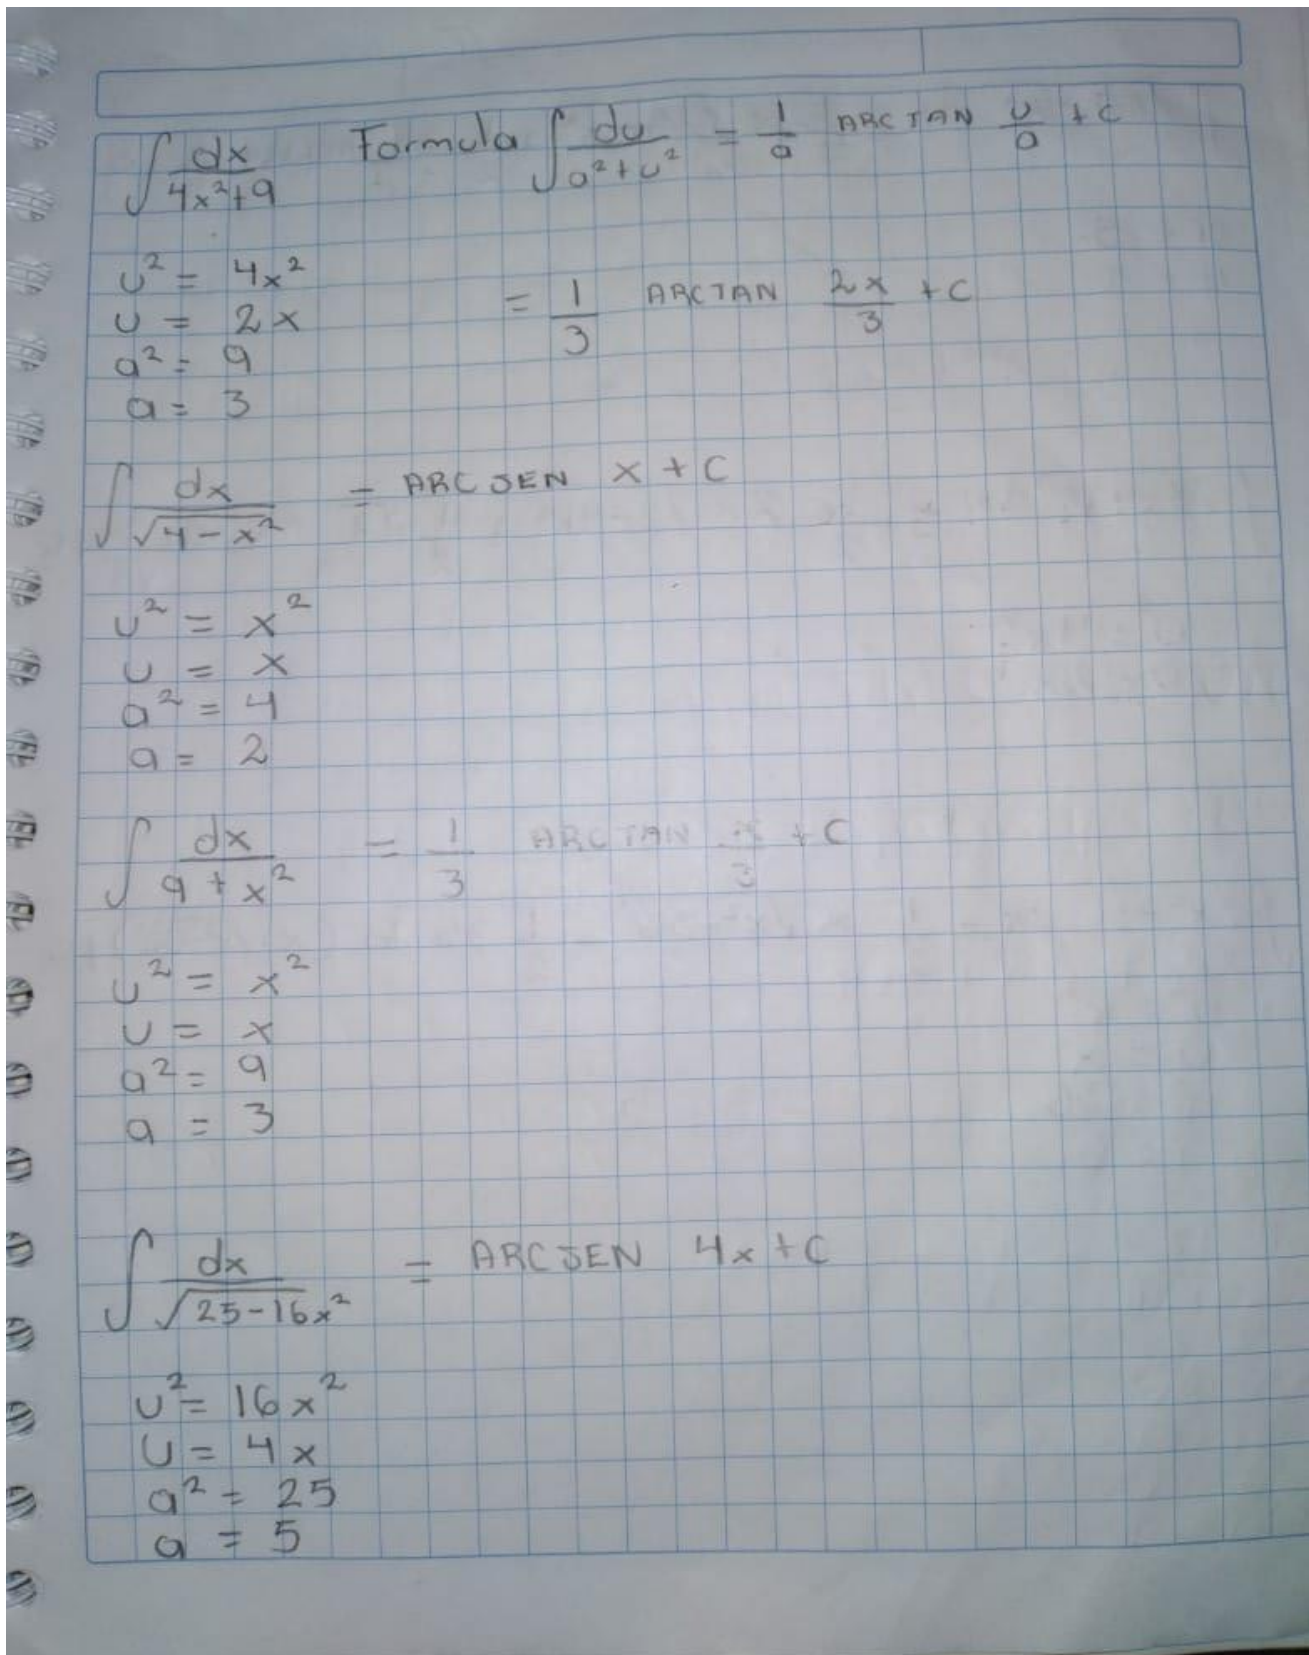 ∫ dx/(4x²+9) Formula ∫ du/(a²+u²) = 1/a ARCTAN u/a + c
u² = 4x²
u = 2x = 1/3 ARCTAN 2x/3 + C
a² = 9
a = 3
∫ dx/√(4-x²) = ARCSEN x + C
u² = x²
u = x
a² = 4
a = 2
∫ dx/(9+x²) = 1/3 ARCTAN x/3 + C
u² = x²
u = x
a² = 9
a = 3
∫ dx/√(25-16x²) = ARCSEN 4x + C
u² = 16x²
u = 4x
a² = 25
a = 5